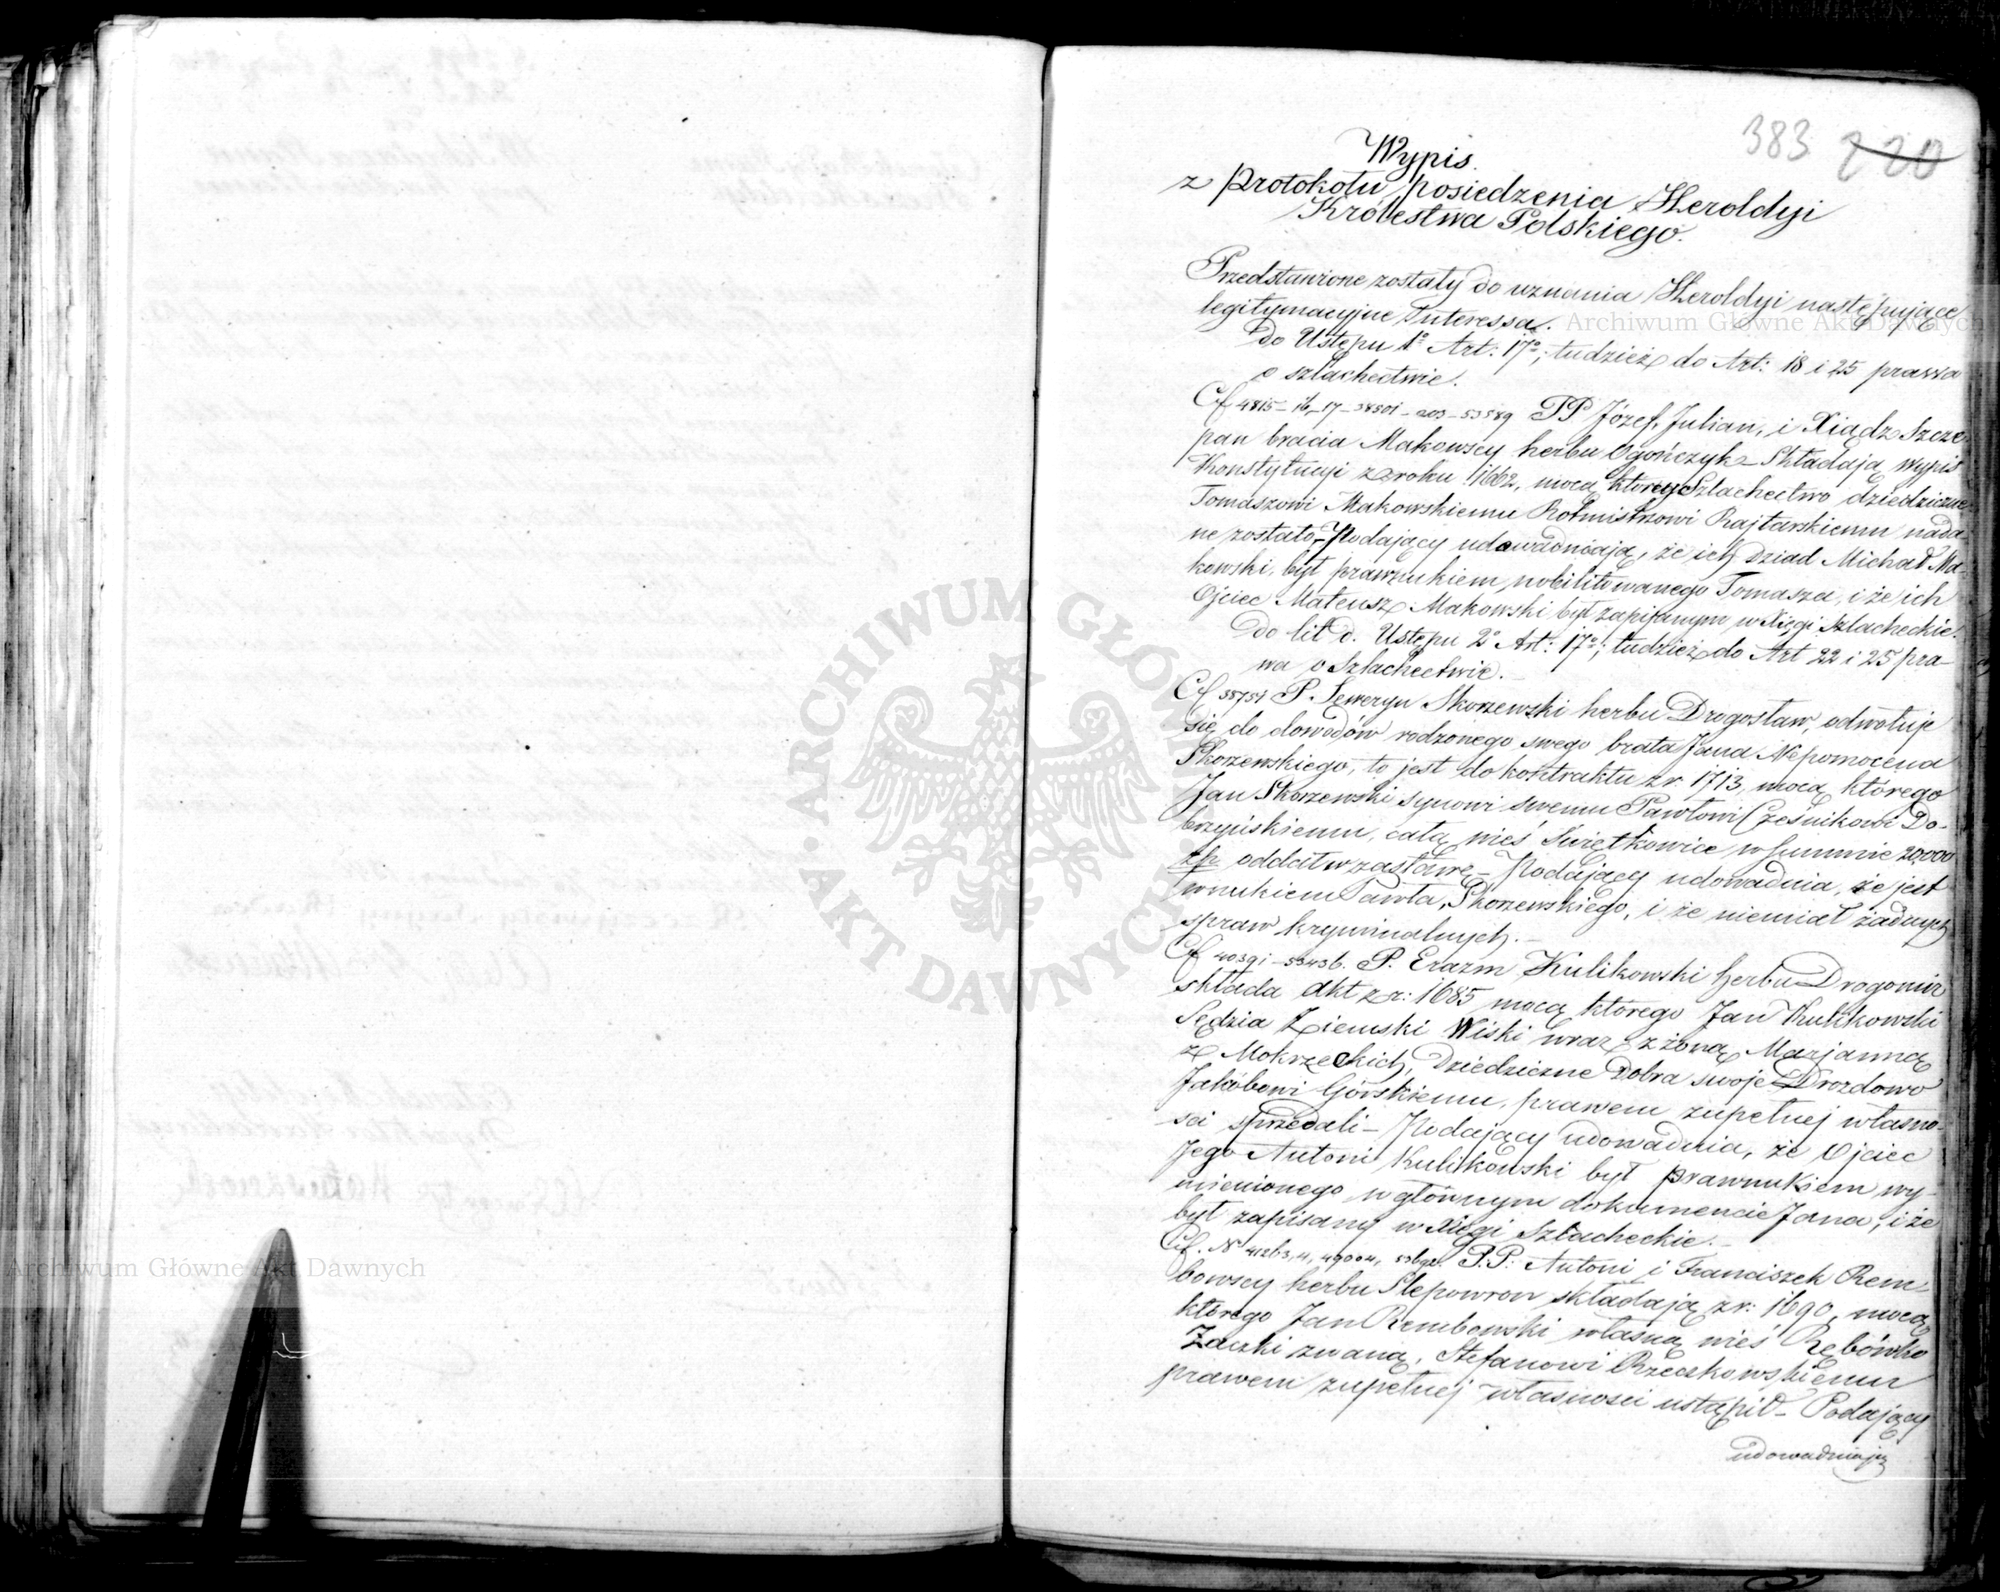 383 220
Wypis
z Protokołu posiedzenia Heroldyi
Królestwa Polskiego.
Przedstawione zostały do uznania Heroldyi następujące
legitymacyjne Interessa.
Do Ustępu 1º Art: 17º, tudzież do Art: 18 i 25 prawa
o szlachectwie.
PP Józef, Julian, i Xiądz Szcze-
pan bracia Makowscy herbu Ogończyk – Składają wypis
Konstytucyi z roku 1662, mocą której Szlachectwo dziedziczne
Tomaszowi Makowskiemu Rotmistrzowi Rajtarskiemu nada-
ne zostało – Podający udowadniają, że ich Dziad Michał Ma-
kowski, był prawnukiem nobilitowanego Tomasza, i że ich
Ojciec Mateusz Makowski był zapisanym w Xięgi Szlacheckie.
Do lit D. Ustępu 2º Art: 17º, tudzież do Art 22 i 25 pra-
wa o Szlachectwie.
P. Seweryn Skorzewski herbu Drogosław, odwołuje
się do dowodów rodzonego swego brata Jana Nepomocena
Skorzewskiego, to jest do kontraktu z r. 1713, mocą którego
Jan Skorzewski synowi swemu Pawłowi Cześnikowi Do-
brzyńskiemu, całą wieś Świętkowice w summie 20,000
zp oddał w zastawę – Podający udowadnia, że jest
wnukiem Pawła Skorzewskiego, i że niemiał żadnych
spraw kryminalnych. –
P. Erazm Kulikowski herbu Drogomir
składa Akt z r: 1685 mocą którego Jan Kulikowski
Sędzia Ziemski Wiski wraz z żoną Marjanną
z Mokrzeckich, Dziedziczne Dobra swoje Drozdowo
Jakóbowi Górskiemu, prawem zupełnej własno-
sci sprzedali – Podający udowadnia, że Ojciec
Jego Antoni Kulikowski był prawnukiem wy-
mienionego w głównym dokumencie Jana, i że
był zapisany w Xięgi Szlacheckie. –
P.P. Antoni i Franciszek Rem-
bowscy herbu Slepowron składają z r: 1690, mocą
którego Jan Rembowski własną wieś Rębówko
Zaczki zwaną, Stefanowi Rzeczkowskiemu
prawem zupełnej własnosci ustąpił – Podający
udowadniają
Archiwum Główne Akt Dawnych
Archiwum Główne Akt Dawnych
ARCHIWUM GŁÓWNE AKT DAWNYCH